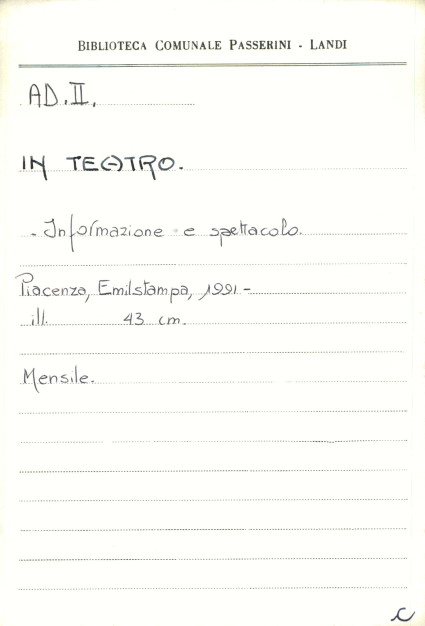 BIBLIOTECA COMUNALE PASSERINI - LANDI
AD. II.
IN TEATRO.
- Informazione e spettacolo.
Piacenza, Emilstampa, 1991 -
ill. 43 cm.
Mensile.
C